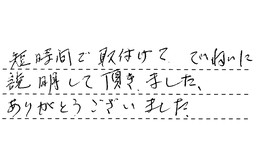 短時間で取付けて ていねいに
説明して頂きました、
ありがとうございました、